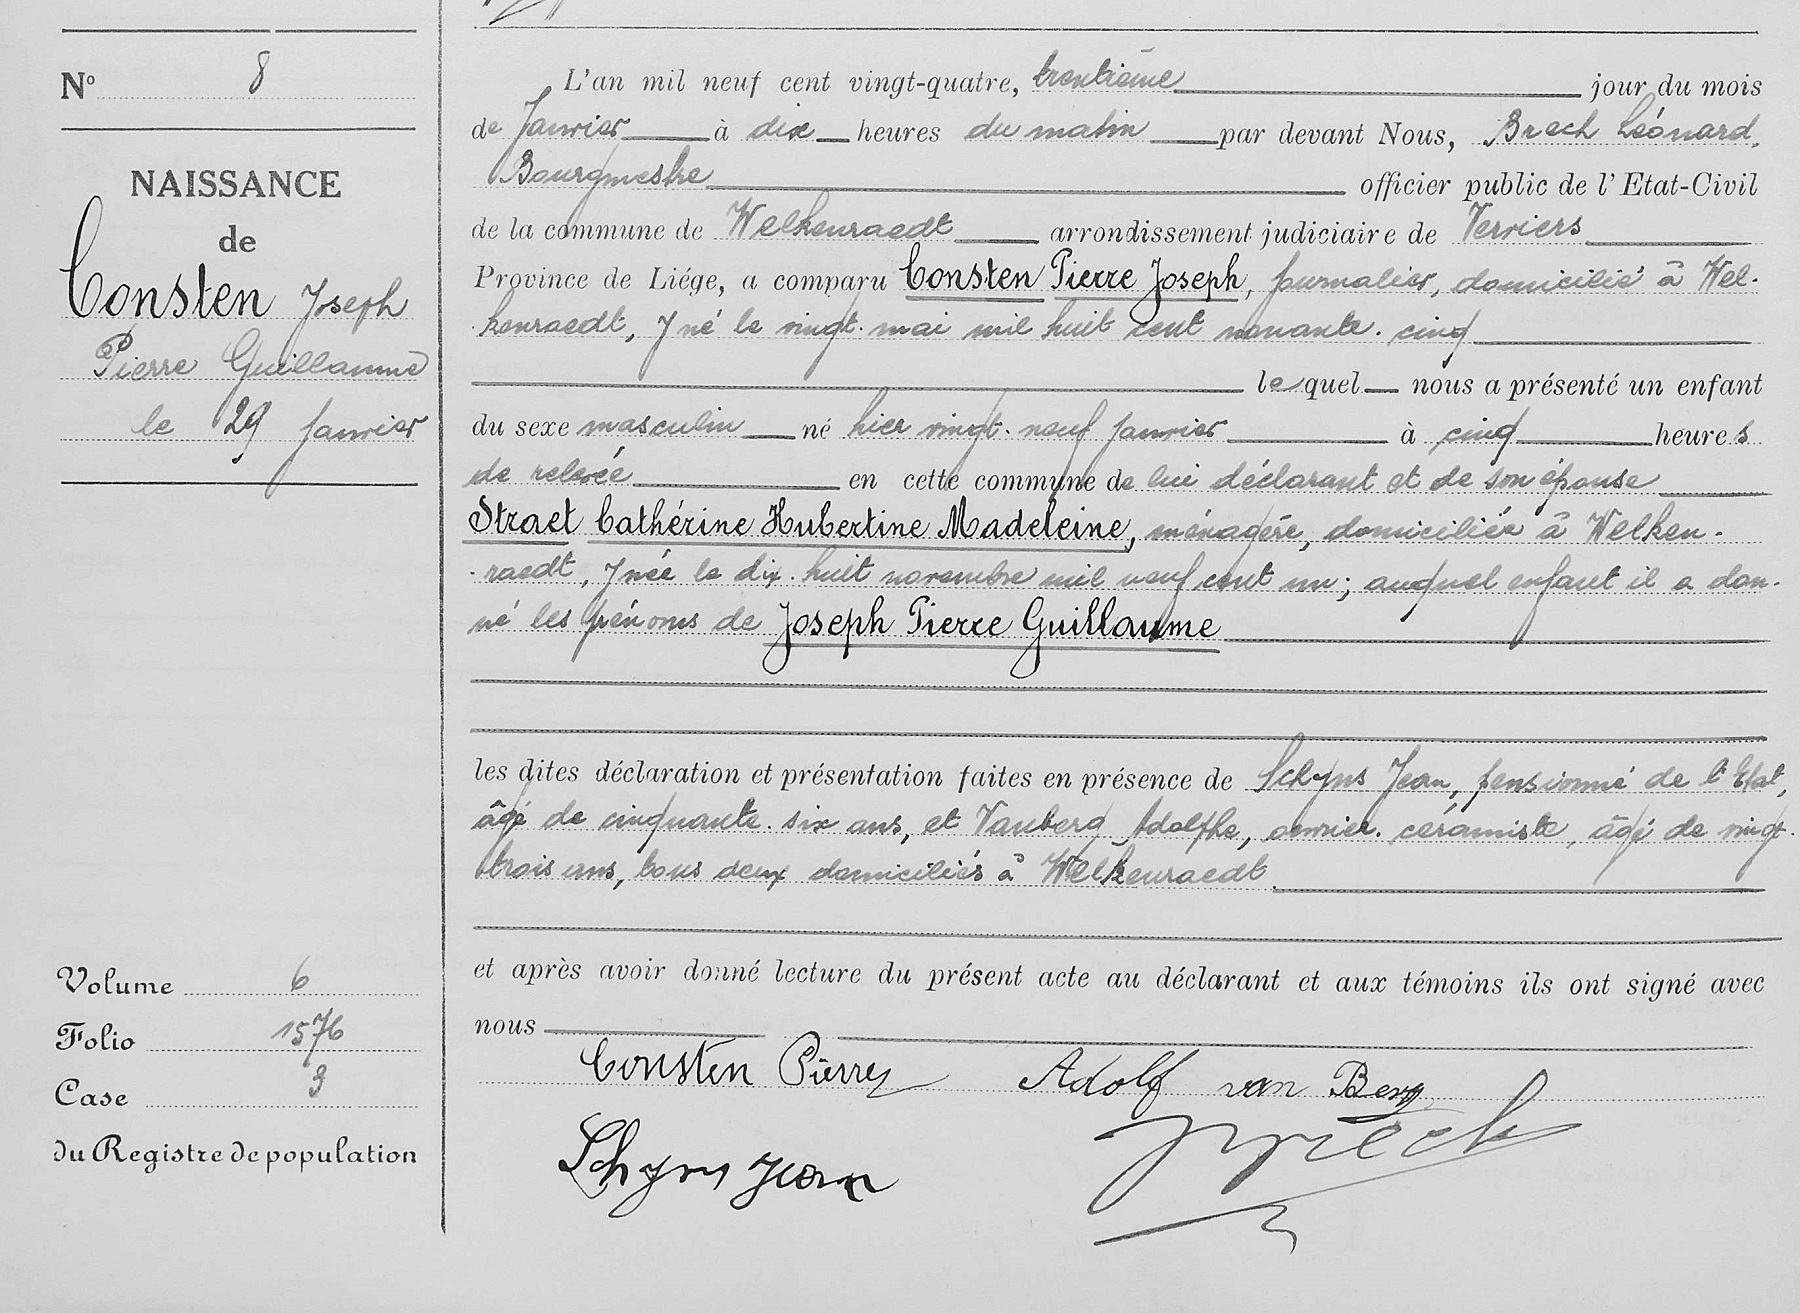 N° 8
NAISSANCE
de
Consten Joseph
Pierre Guillaume
le 29 janvier
L'an mil neuf cent vingt-quatre, trentième jour du mois
de Janvier à dix heures du matin par devant Nous, Brech Léonard,
Bourgmestre officier public de l'Etat-Civil
de la commune de Welkenraedt arrondissement judiciaire de Verviers
Province de Liége, a comparu Consten Pierre Joseph, journalier, domicilié à Wel-
kenraedt, y né le vingt-mai mil huit cent nonante-cinq
lequel nous a présenté un enfant
du sexe masculin né hier vingt-neuf janvier à cinq heures
de relevée en cette commune de lui déclarant et de son épouse
Straet Cathérine Hubertine Madeleine, ménagère, domiciliée à Welken-
raedt, y née le dix-huit novembre mil neuf cent un; auquel enfant il a don-
né les prénoms de Joseph Pierre Guillaume
les dites déclaration et présentation faites en présence de Schyns Jean, pensionné de l'Etat,
âgé de cinquante-six ans, et Vanberg Adolphe, ouvrier-céramiste, âgé de vingt-
trois ans, tous deux domiciliés à Welkenraedt
et après avoir donné lecture du présent acte au déclarant et aux témoins ils ont signé avec
nous
Consten Pierre Adolf van Berg
Schyns Jean Brech
Volume 6
Folio 1576
Case 3
du Registre de population